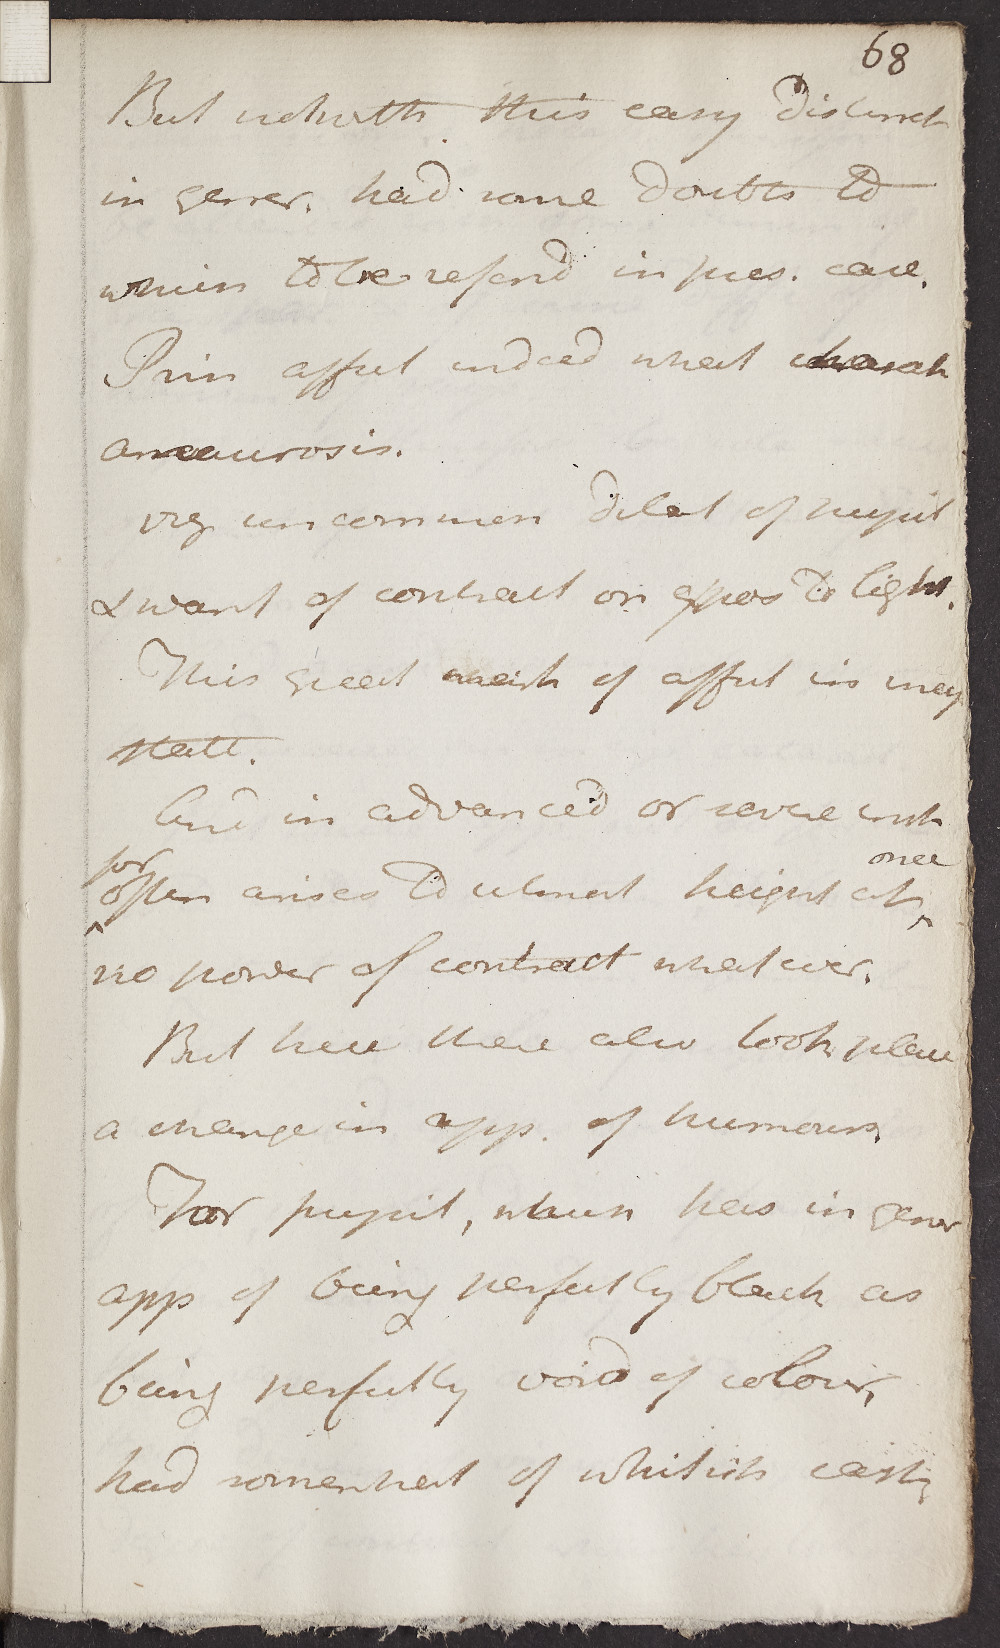 68
But notwith this easy distinct
in gener. had some doubts to
which to be referd in pres. case.
Prin affect indeed what charact
amaurosis.
viz uncommon dilat of pupil
& want of contract on expos to light.
This great mark of affect in incip
state.
And in advanced or severe inst
for often arises to utmost height at once
no power of contract whatever.
But here there also took place
a change in app. of humours
For pupil, which has in gener
app of being perfectly black as
being perfectly void of colour,
had somewhat of whitish cast